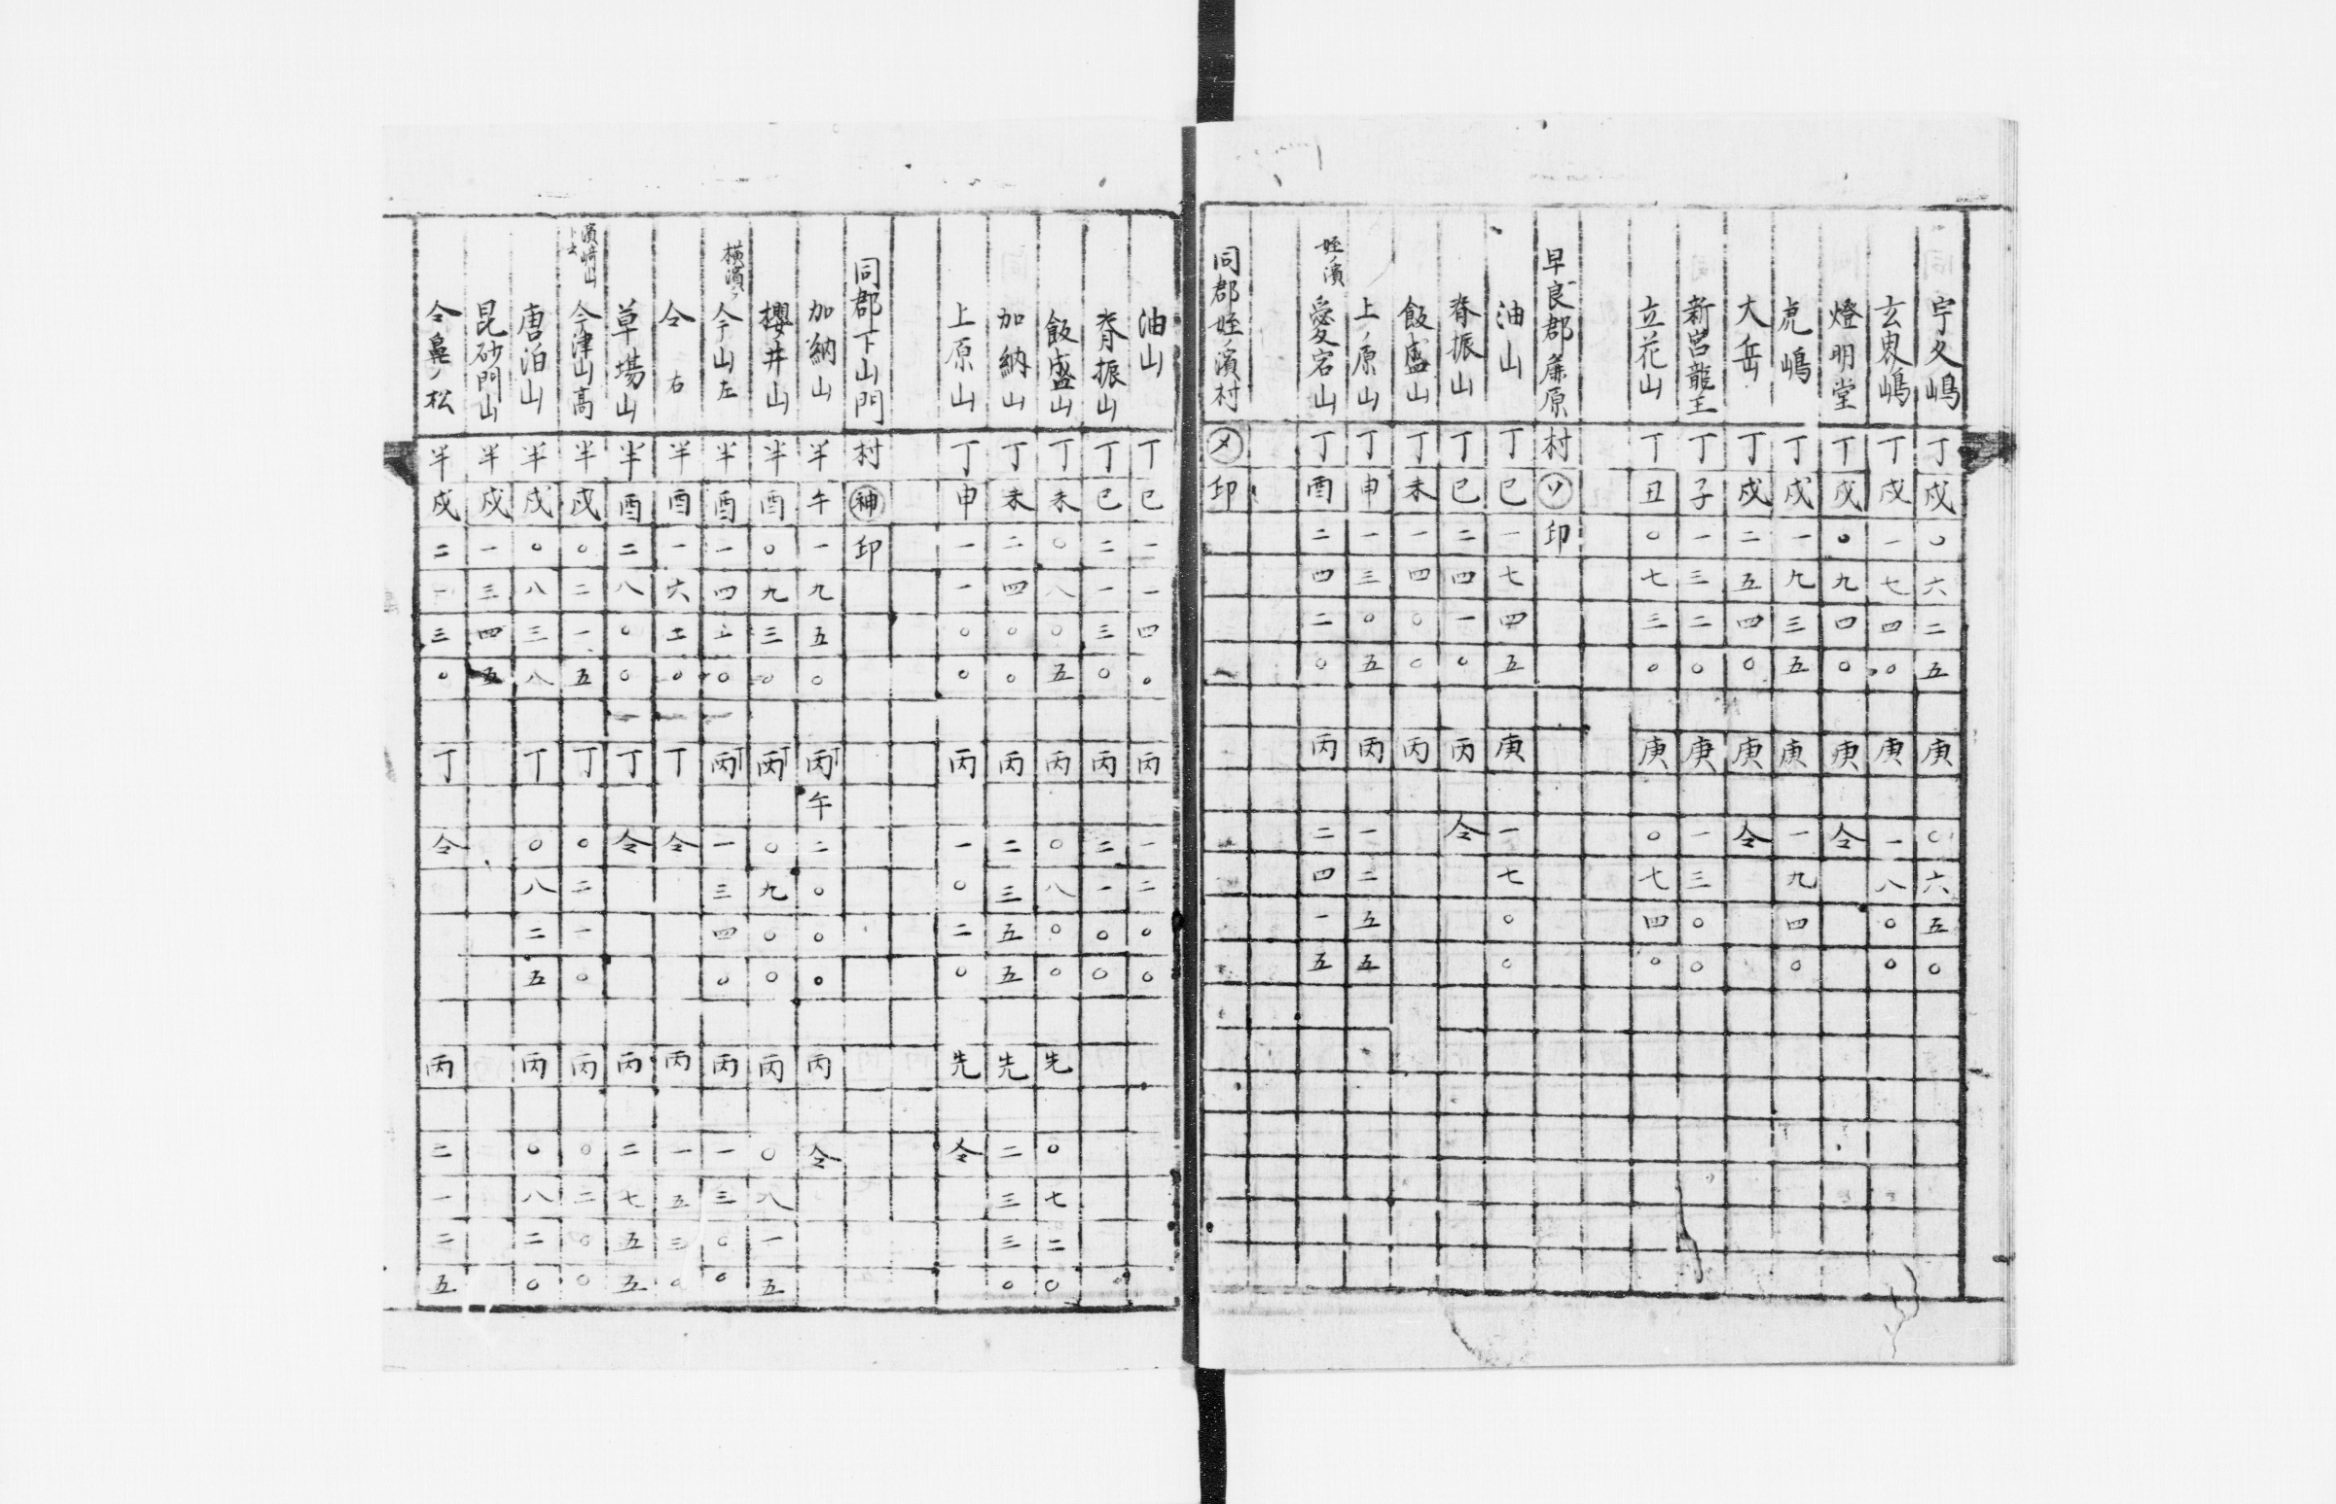 宇久嶋 丁戌〇六二五 庚〇六五〇
玄界嶋 丁戌一七四〇 庚一八〇〇
燈明堂 丁戌〇九四〇 庚仝
虎嶋 丁戌一九三五 庚一九四〇
大岳 丁戌二五四〇 庚仝
新宮龍王 丁子一三二〇 庚一三〇〇
立花山 丁丑〇七三〇 庚〇七四〇
早良郡庶原村㋞印
油山 丁巳一七四五 庚一七〇〇
脊振山 丁巳二四一〇 丙仝
飯盛山 丁未一四〇〇 丙
上ノ原山 丁申一三〇五 丙一二五五
姪ノ濱 愛宕山 丁酉二四二〇 丙二四一五
同郡姪ノ濱村㋱印
油山 丁巳一一四〇 丙一二〇〇
脊振山 丁巳二一三〇 丙二一〇〇
飯盛山 丁未〇八〇五 丙〇八〇〇 先〇七二〇
加納山 丁未二四〇〇 丙二三五五 先二三三〇
上原山 丁申一一〇〇 丙一〇二〇 先仝
同郡下山門村㊙印
加納山 半午一九五〇 丙丁午二〇〇〇 丙仝
櫻井山 半酉〇九三〇 丙丁〇九〇〇 丙〇八一五
横濱ノ 今山左 半酉一四土〇 丙丁一三四〇 丙一三〇〇
仝 右 半酉一六土〇 丁仝 丙一五三〇
草場山 半酉二八〇〇 丁仝 丙二七五五
濱崎山ト云 今津山高 半戌〇二一五 丁〇二一〇 丙〇二〇〇
唐泊山 半戌〇八三八 丁〇八二五 丙〇八二〇
昆砂門山 半戌一三四五
仝鼻ノ松 半戌二一三〇 丁仝 丙二一二五